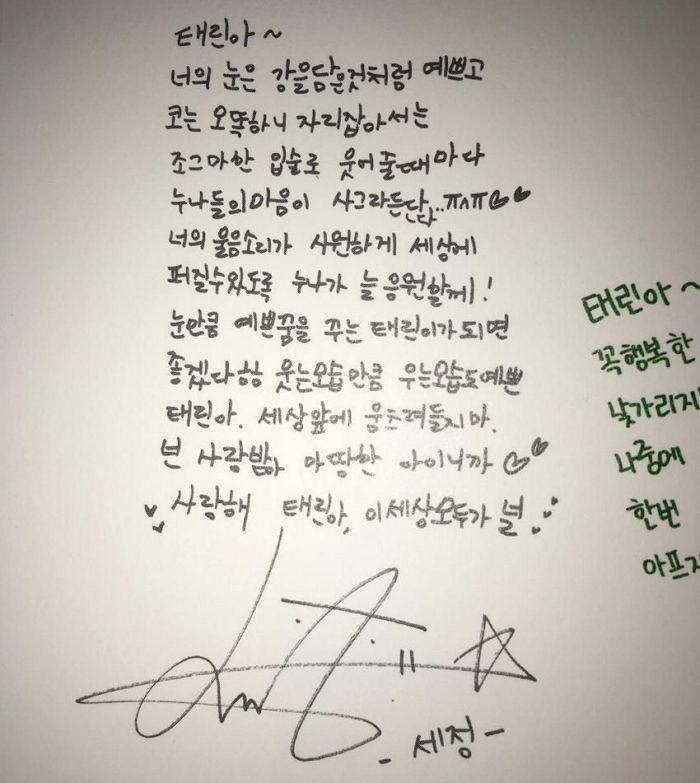 태린아~
너의 눈은 강을담은것처럼 예쁘고
코는 오똑하니 자리잡아서는
조그마한 입술로 웃어줄때마다
누나들의마음이 사그라든단다..ㅠㅅㅠ♡♥
너의 울음소리가 시원하게 세상에
퍼질수있도록 누나가 늘 응원할께!
눈만큼 예쁜꿈을 꾸는 태린이가되면
좋겠다ㅎㅎ 웃는모습만큼 우는모습도예쁜
태린아. 세상앞에 움츠려들지마.
넌 사랑받아 마땅한 아이니까 ♡♥
사랑해 태린아, 이세상모두가 널
- 세정 -
태린아~
꼭행복한
낯가리지
나중에
한번
아프지